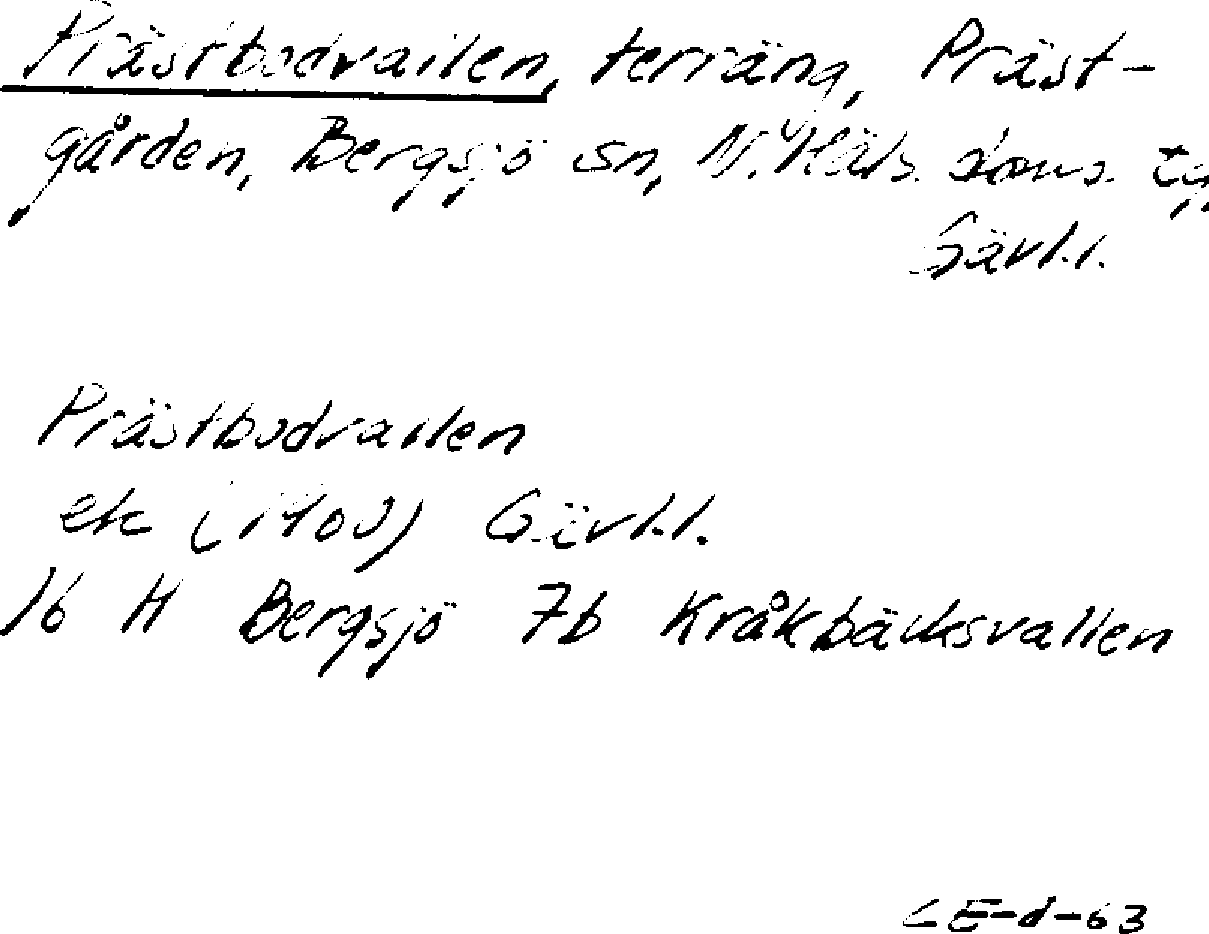 Prästbodvallen, terräng, Präst-
gården, Bergsjö sn, N. Häls. doms. tg,
Gävl.l.
Prästbodvallen
ek (1960) Gävl.l.
16 H Bergsjö 7b Kråkbäcksvallen
CE-d-63